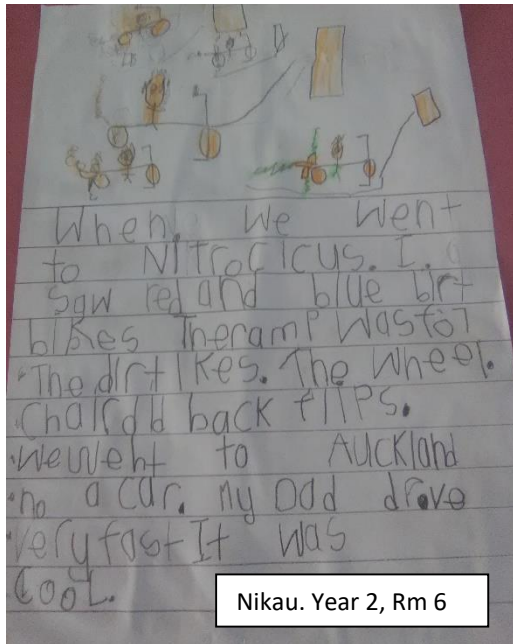 When. we went
to Nitrocicus. I.
saw red and blue birt
bikes Theramp wasfor
The dirt ikes. The wheel.
chairdid back flips.
wewent to Auckland
no a car. my Dad drove
very fast It was
cool.
Nikau. Year 2, Rm 6